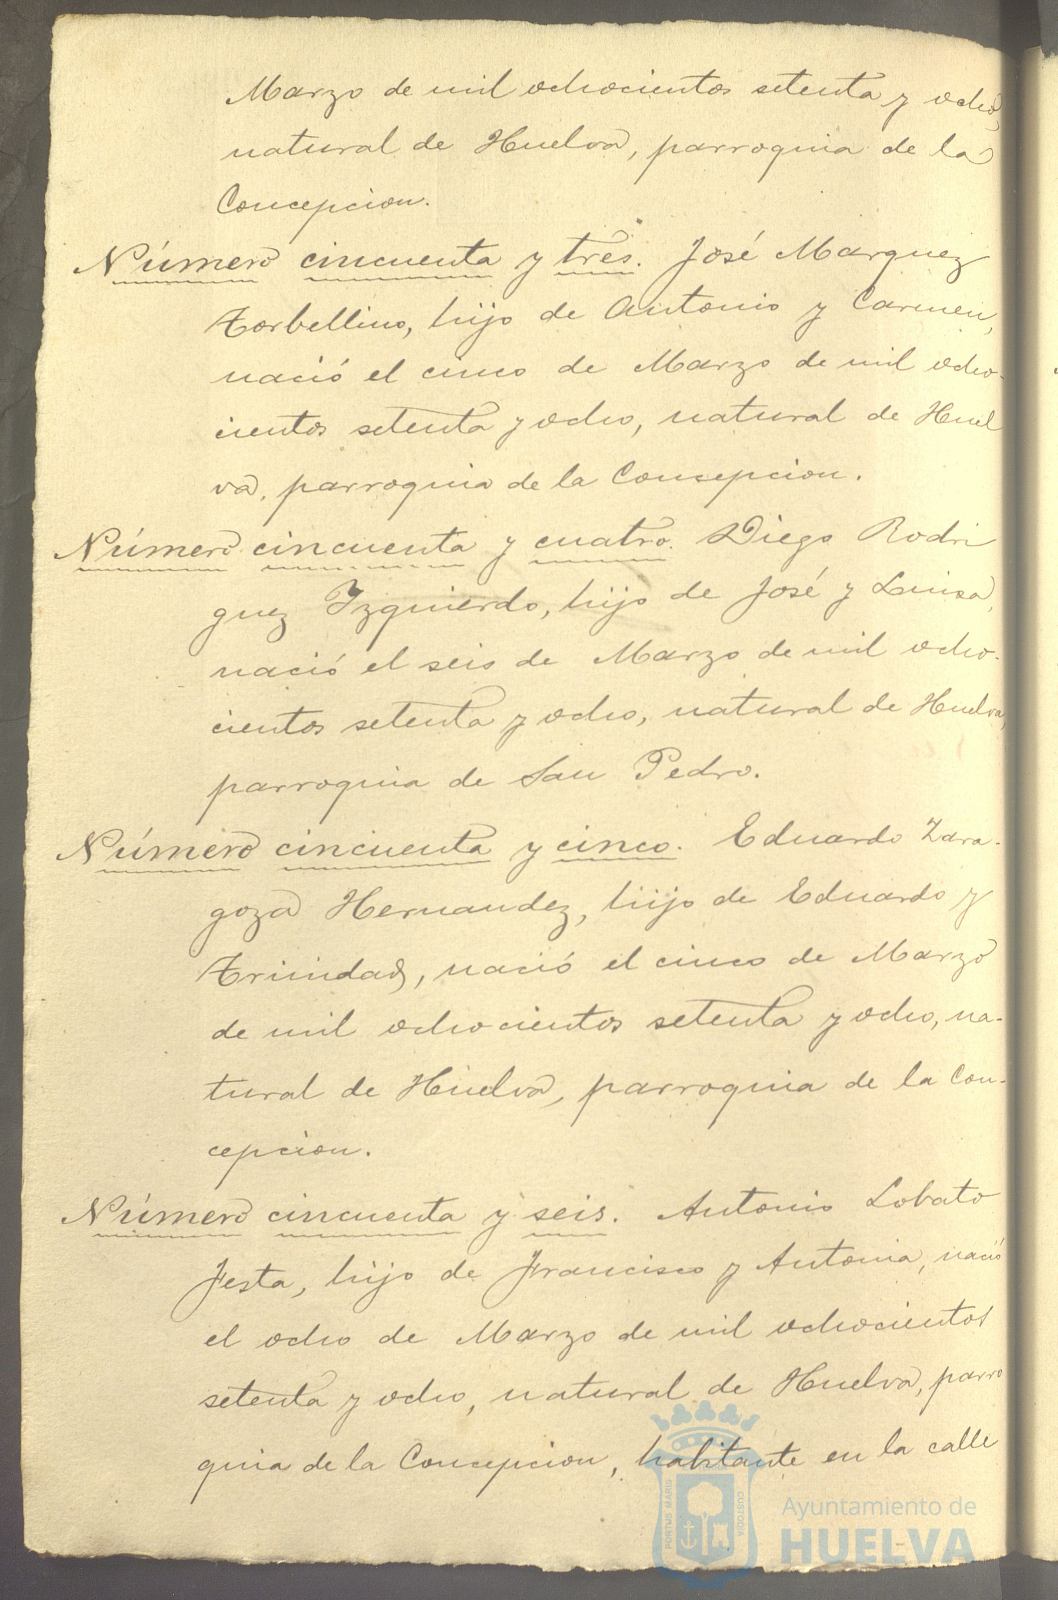 Marzo de mil ochocientos setenta y ocho,
natural de Huelva, parroquia de la
Concepcion.
Número cincuenta y tres. José Marquez
Torbellino, hijo de Antonio y Carmen,
nació el cinco de Marzo de mil ocho-
cientos setenta y ocho, natural de Huel
va, parroquia de la Concepcion.
Número cincuenta y cuatro. Diego Rodri
guez Izquierdo, hijo de José y Luisa,
nació el seis de Marzo de mil ocho-
cientos setenta y ocho, natural de Huelva,
parroquia de San Pedro.
Número cincuenta y cinco. Eduardo Zara-
goza Hernandez, hijo de Eduardo y
Trinidad, nació el cinco de Marzo
de mil ochocientos setenta y ocho, na-
tural de Huelva, parroquia de la Con-
cepcion.
Número cincuenta y seis. Antonio Lobato
Jesta, hijo de Francisco y Antonia, nació
el ocho de Marzo de mil ochocientos
setenta y ocho, natural de Huelva, parro
quia de la Concepcion, habitante en la calle
PORTUS MARIS
CUSTODIA
Ayuntamiento de
HUELVA